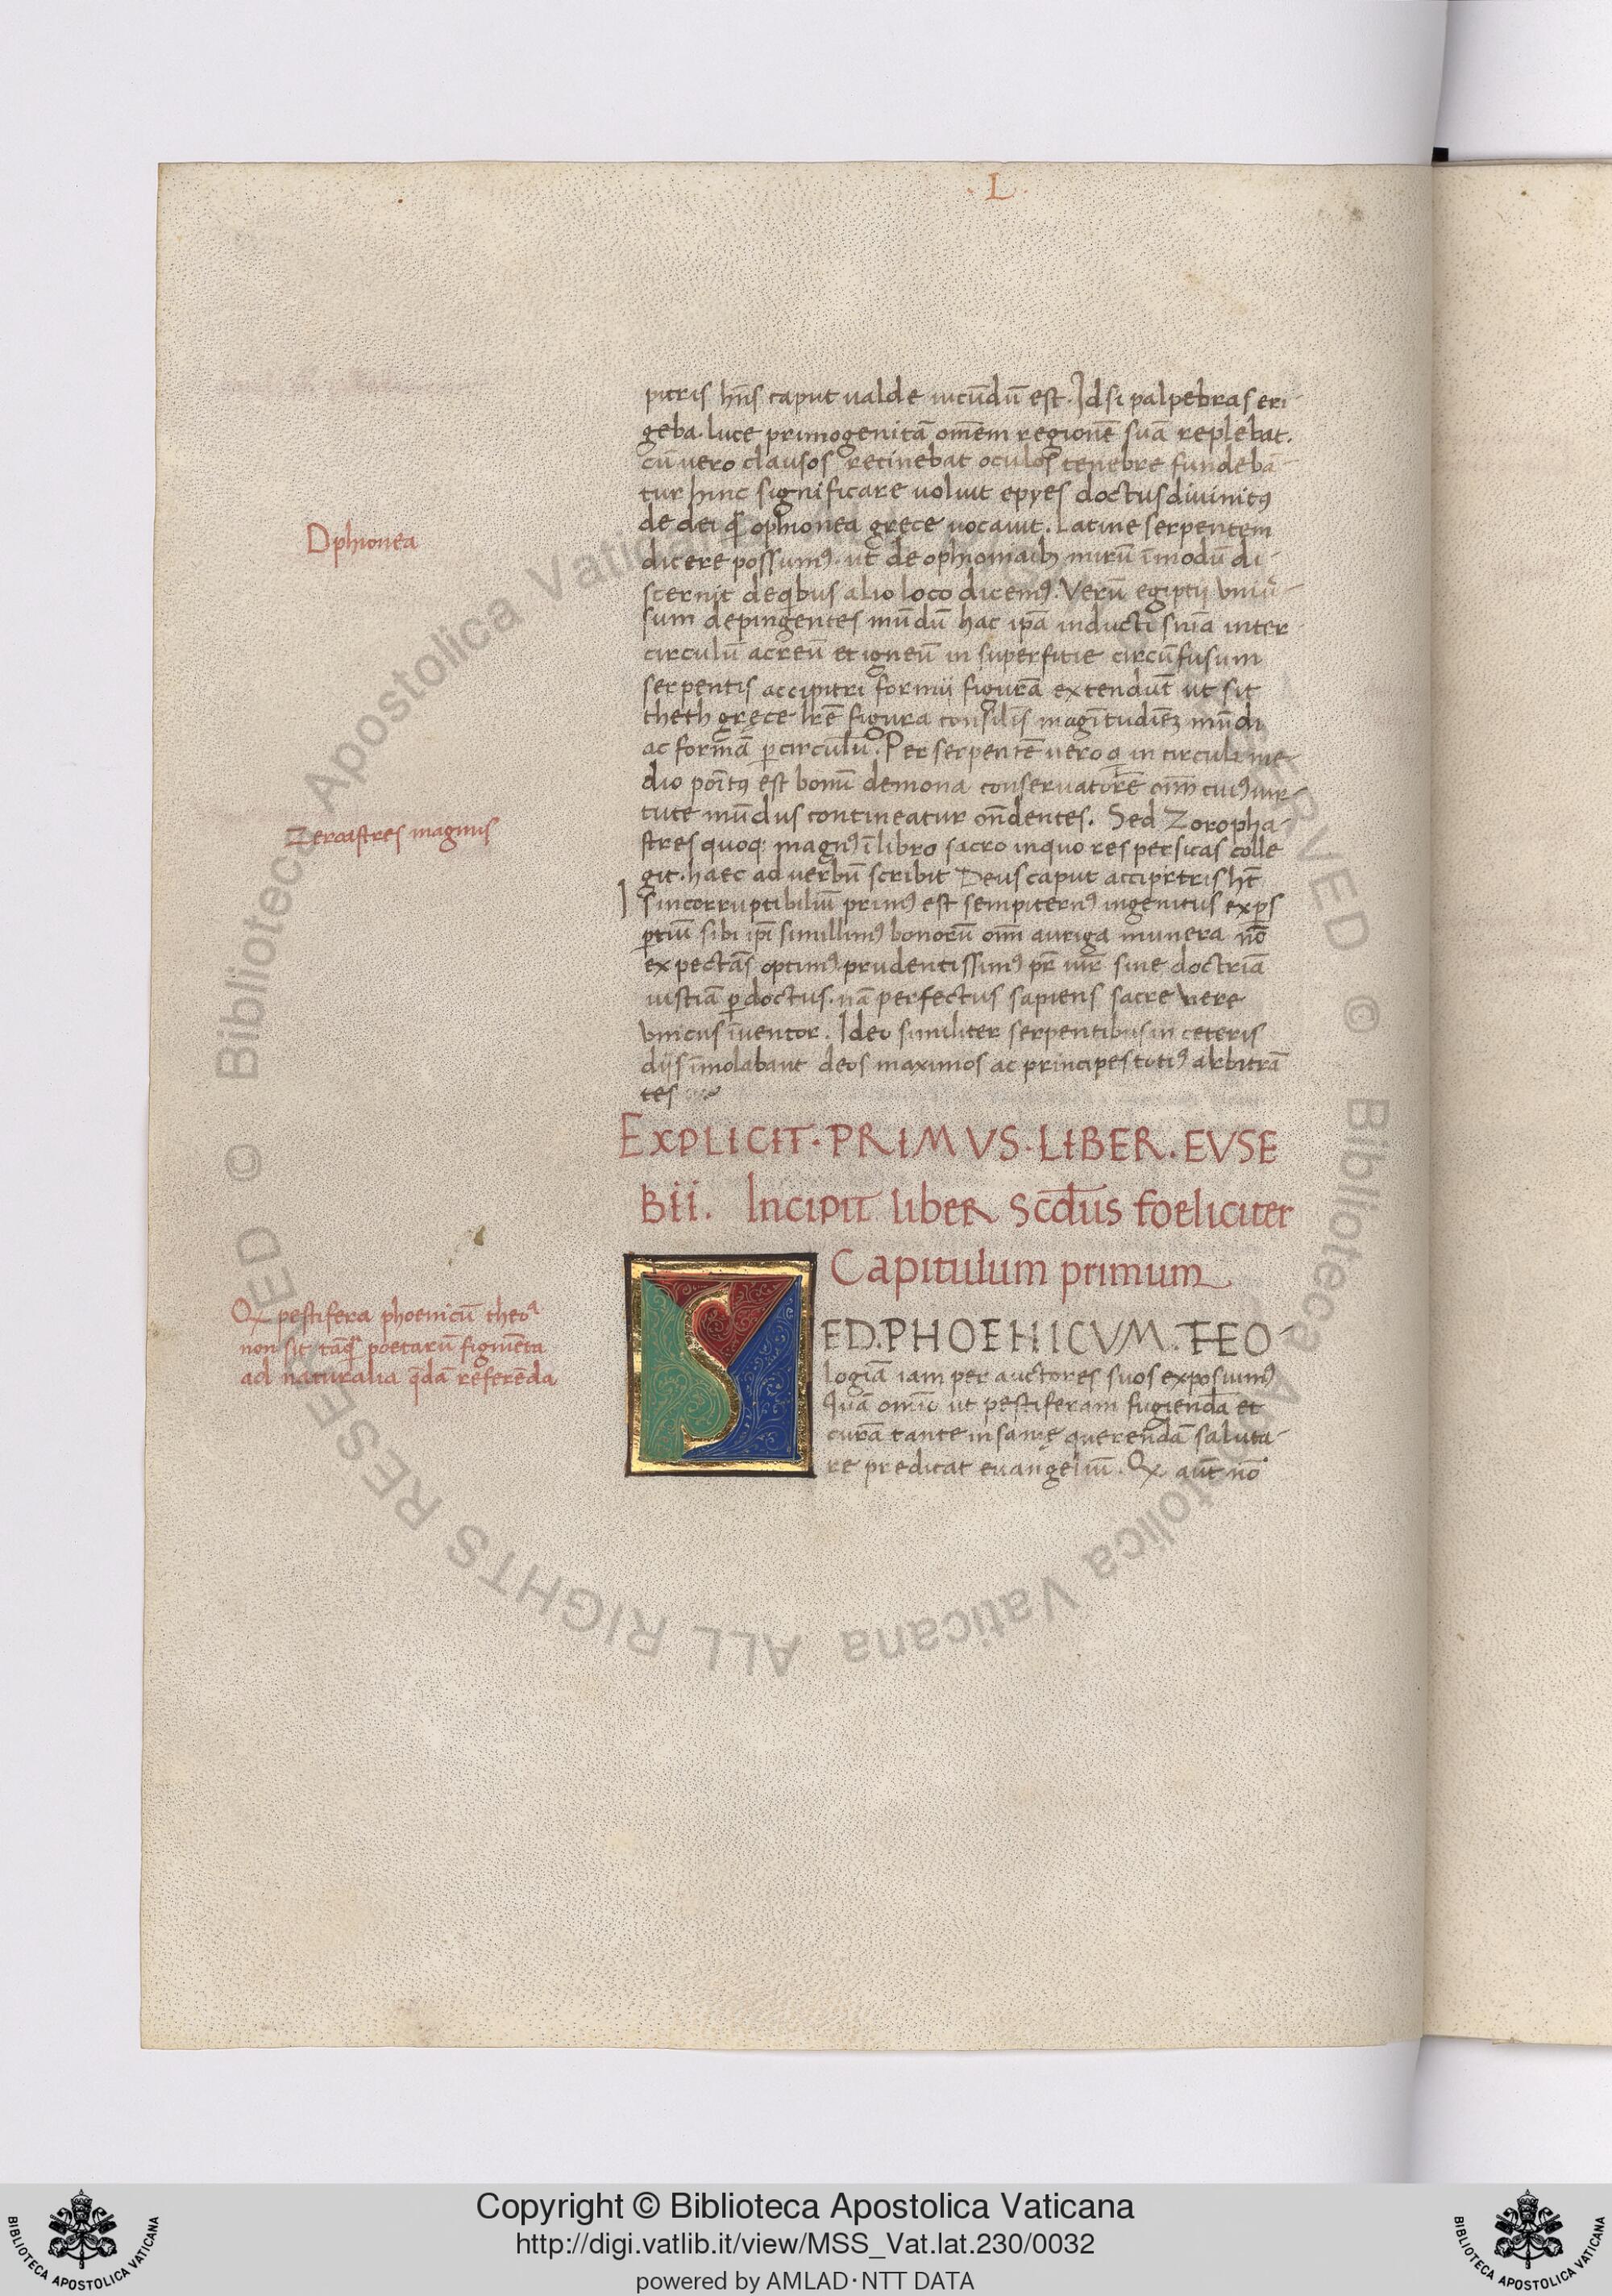 L
pitris hn̄s caput ualde iucūdū est. Id si palpebras eri
geba. luce primogenitā om̄em regionē suā replebat.
cū uero clausos retinebat oculos tenebre fundebā
tur hinc significare uoluit epyes doctus diuinitꝰ
de dei qd̄ ophionea grece uocauit. Latine serpentem
dicere possumꝰ. ut de ophiomaibꝫ mirū ī modū di
scernit de qͥbus alio loco dicemꝰ. Verū egiptij vniũ
sum depingentes mūdū hac ipā inducti snīa inter
circulū aereū et igneū in superfitie circūfusum
serpentis accipitri formij figurā extendūt ut sit
theth grece lr̄e figura consilīs magītudiēz mūdi
ac formā ꝑ circulū. Per serpentē uero q in circuli me
dio poītꝰ est bonū demona conseruatorē om̄ cuiꝰ uir
tute mūdus contineatur on̄dentes. Sed Zoropha
stres quoqꝫ magnꝰ ī libro sacro in quo res persicas colle
git. haec ad uerbū scribit Deus caput accipitris hr̄
I s incorruptibiliū primꝰ est sempiternꝰ ingenitus expꝑs
ꝑtiū sibi ipī simillimꝰ bonorū om̄ auriga munera nō
expectās optimꝰ prudentissimꝰ pr̄ iur̄ sine doctriā
iustiā ꝑdoctus. nā perfectus sapiens sacre nere
vnicus īuentor. Ideo similiter serpentibus in ceteris
dijs īmolabant deos maximos ac principes totiꝰ arbitrā
tes
EXPLICIT. PRIMVS. LIBER. EVSE
Bii. Incipit liber Scd̄us foeliciter
Capitulum primum
ED. PHOEHICVM. THEO
logiā iam per auctores suos exposuimꝰ
Quā omīo ut pestiferam fugiendā et
curā tante insanię querendā saluta
re predicat euangeliū. Qꝫ aūt nō
Ophionea
Zeroastres magnus
Qꝫ pestifera phoenicū theoᵃ
non sit tāqͣ poetarū figmēta
ad naturalia qͣdā referēda
Copyright © Biblioteca Apostolica Vaticana
http://digi.vatlib.it/view/MSS_Vat.lat.230/0032
powered by AMLAD · NTT DATA
BIBLIOTECA APOSTOLICA VATICANA
BIBLIOTECA APOSTOLICA VATICANA
© Biblioteca Apostolica Vaticana ALL RIGHTS RESERVED © Biblioteca Apostolica Vaticana ALL RIGHTS RESERVED